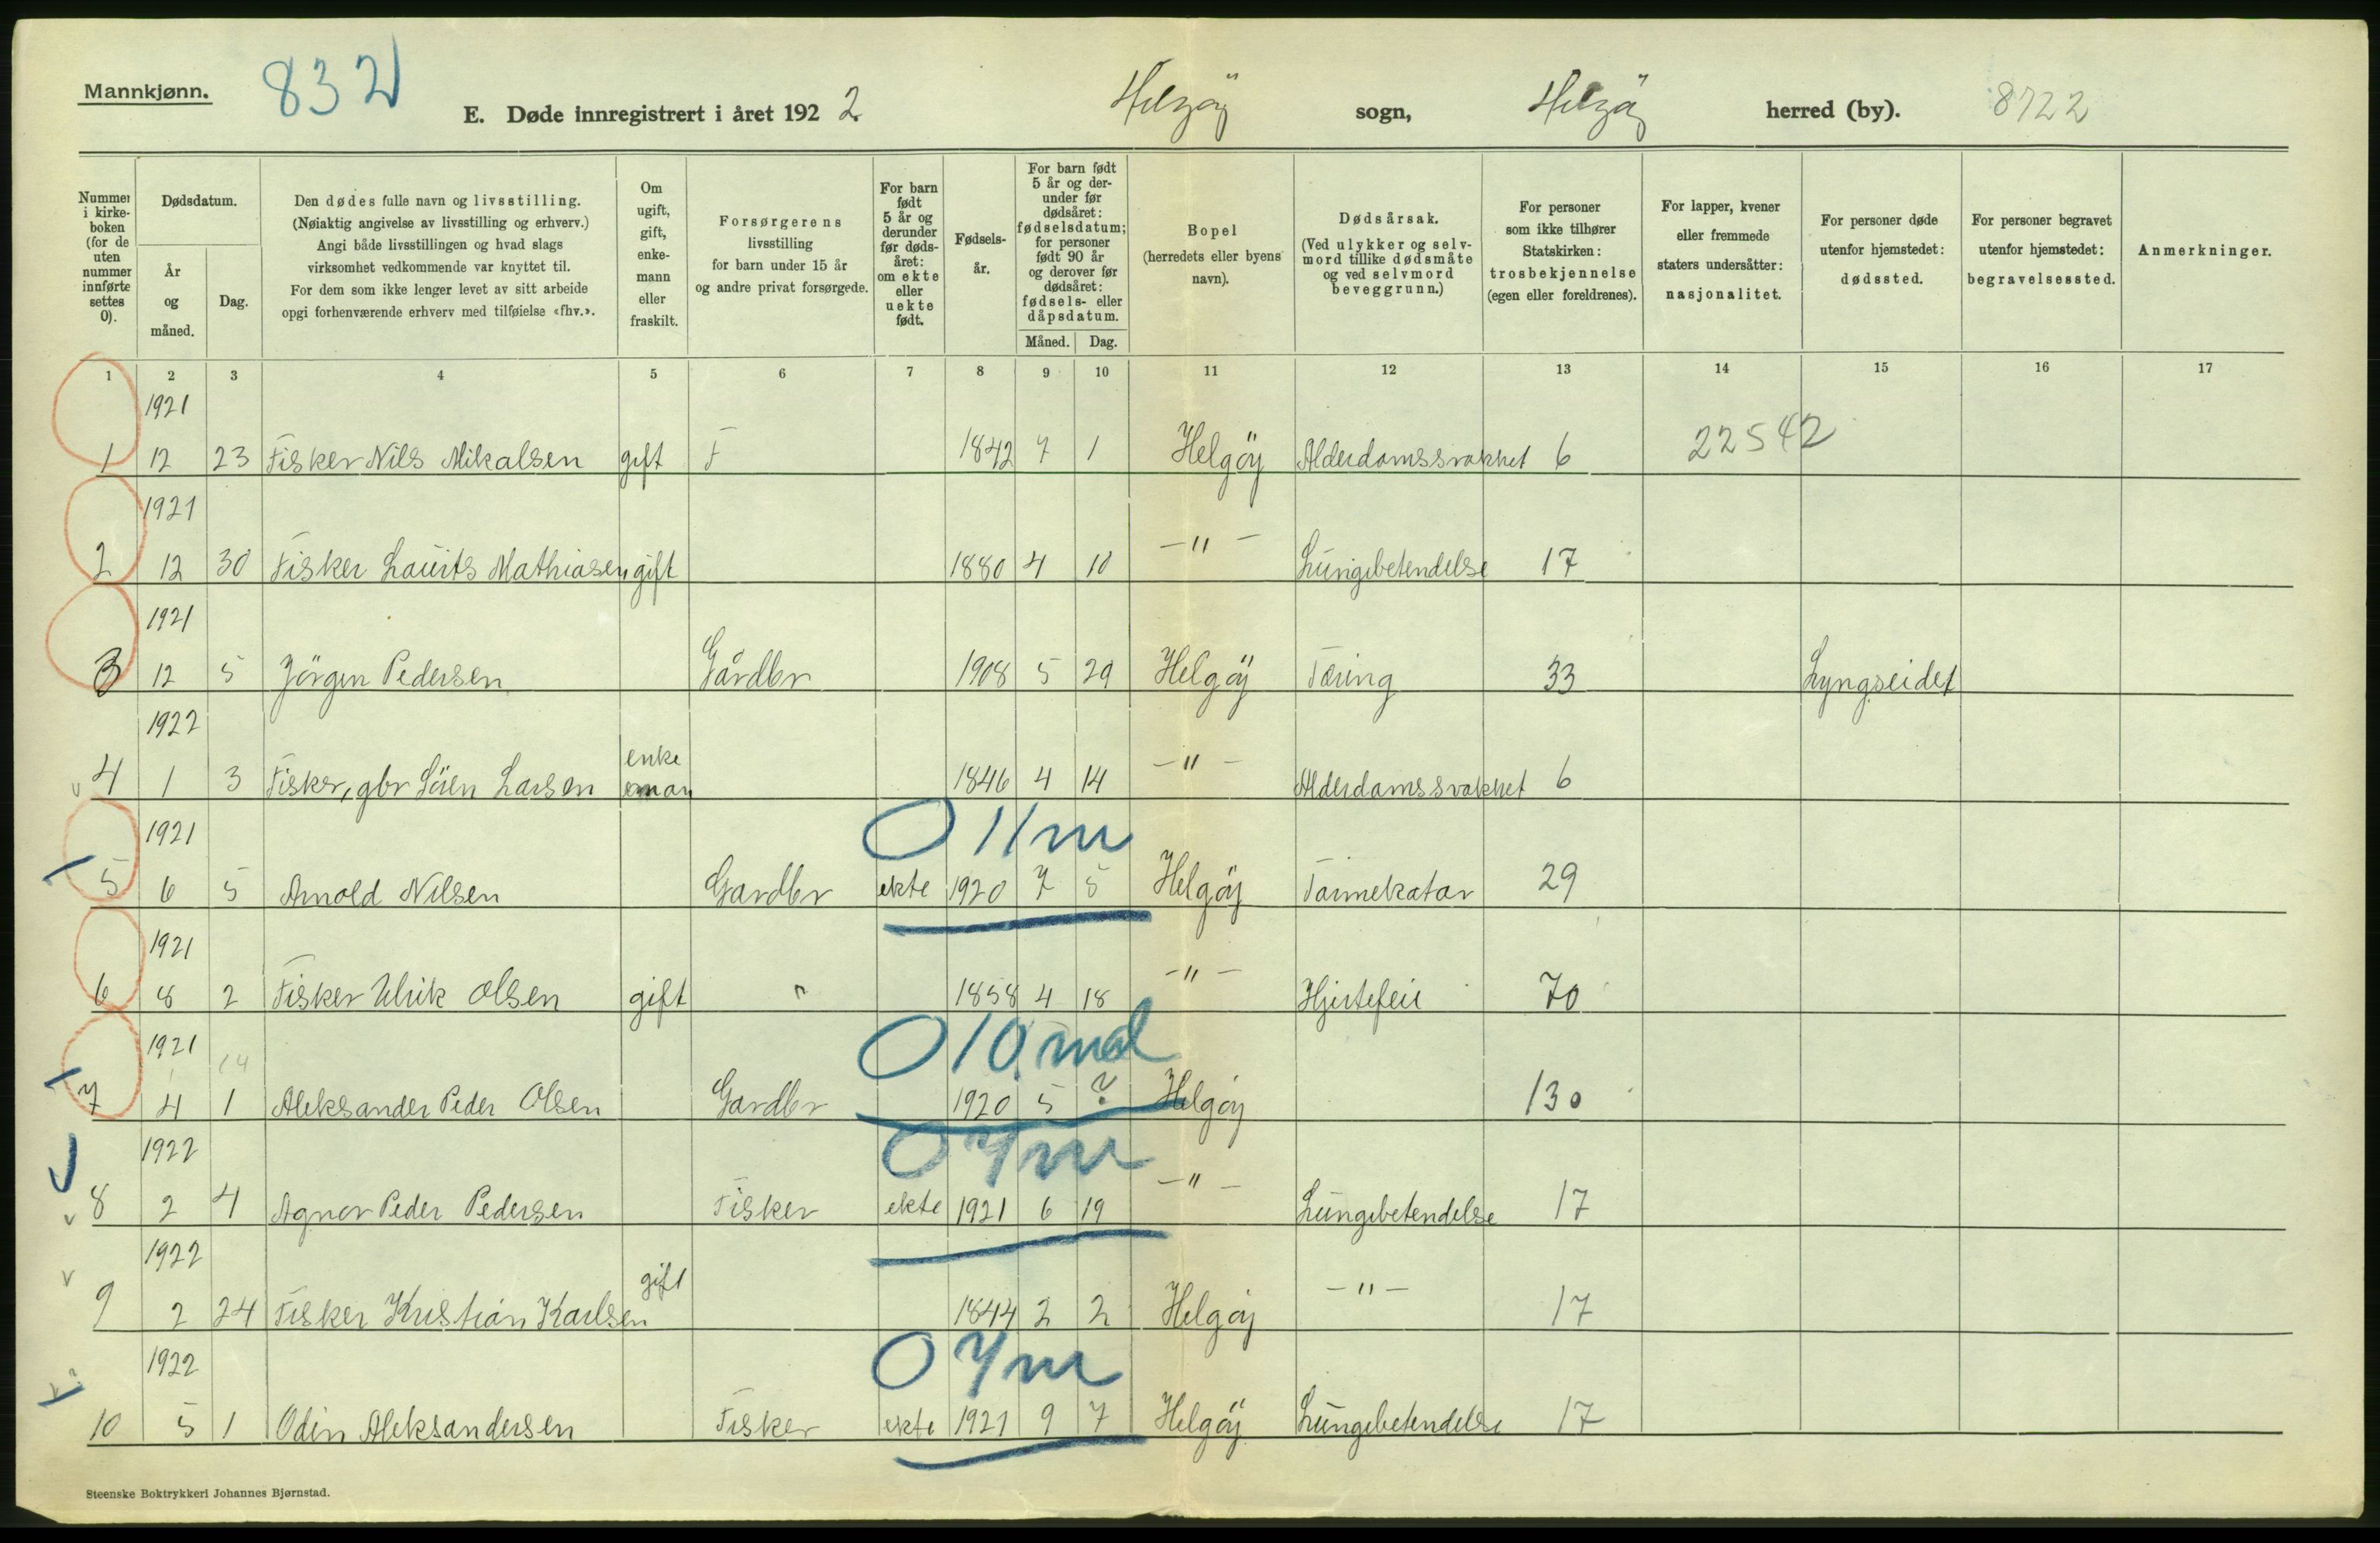 Mannkjønn.
832
E. Døde innregistrert i året 1922
Helgöy sogn, Helgöy herred (by). 8722
Nummer i kirkeboken (for de uten nummer innførte settes 0).
Dødsdatum.
År og måned.
Dag.
Den dødes fulle navn og livsstilling.
(Nøiaktig angivelse av livsstilling og erhverv.)
Angi både livsstillingen og hvad slags
virksomhet vedkommende var knyttet til.
For dem som ikke lenger levet av sitt arbeide
opgi forhenværende erhverv med tilføielse «fhv.».
Om ugift, gift, enkemann eller fraskilt.
Forsørgerens livsstilling
for barn under 15 år
og andre privat forsørgede.
For barn født 5 år og derunder før dødsåret: om ekte eller uekte født.
Fødselsår.
For barn født 5 år og derunder før dødsåret: fødselsdatum; for personer født 90 år og derover før dødsåret: fødsels- eller dåpsdatum.
Måned. Dag.
Bopel
(herredets eller byens navn).
Dødsårsak.
(Ved ulykker og selvmord tillike dødsmåte og ved selvmord beveggrunn.)
For personer som ikke tilhører Statskirken: trosbekjennelse (egen eller foreldrenes).
For lapper, kvener eller fremmede staters undersåtter: nasjonalitet.
For personer døde utenfor hjemstedet: dødssted.
For personer begravet utenfor hjemstedet: begravelsessted.
Anmerkninger.
1 2 3 4 5 6 7 8 9 10 11 12 13 14 15 16 17
1921
1 12 23 Fisker Nils Mikalsen gift F 1842 7 1 Helgöy Alderdomssvakhet 6 22542
1921
2 12 30 Fisker Laurits Mathiasen gift 1880 4 10 -"- Lungebetendelse 17
1921
3 12 5 Jörgen Pedersen Gårdbr 1908 5 29 Helgöy Tæring 33 Lyngseidet
1922
4 1 3 Fisker, gbr Sören Larsen enke man 1846 4 14 -"- Alderdomssvakhet 6
1921 0 11 m
5 6 5 Arnold Nilsen Gardbr ekte 1920 7 5 Helgöy Tarmekatar 29
1921
6 8 2 Fisker Ulrik Olsen gift " 1858 4 18 -"- Hjertefeil 70
1921 14 0 10 md
7 4 1 Aleksander Peder Olsen Gardbr 1920 5 ? Helgöy 130
1922 0 7 m
8 2 4 Agnor Peder Pedersen Fisker ekte 1921 6 19 -"- Lungebetendelse 17
1922
9 2 24 Fisker Kristian Karlsen gift 1844 2 2 Helgöy -"- 17
1922 0 7 m
10 5 1 Odin Aleksandersen Fisker ekte 1921 9 7 Helgöy Lungebetendelse 17
Steenske Boktrykkeri Johannes Bjørnstad.